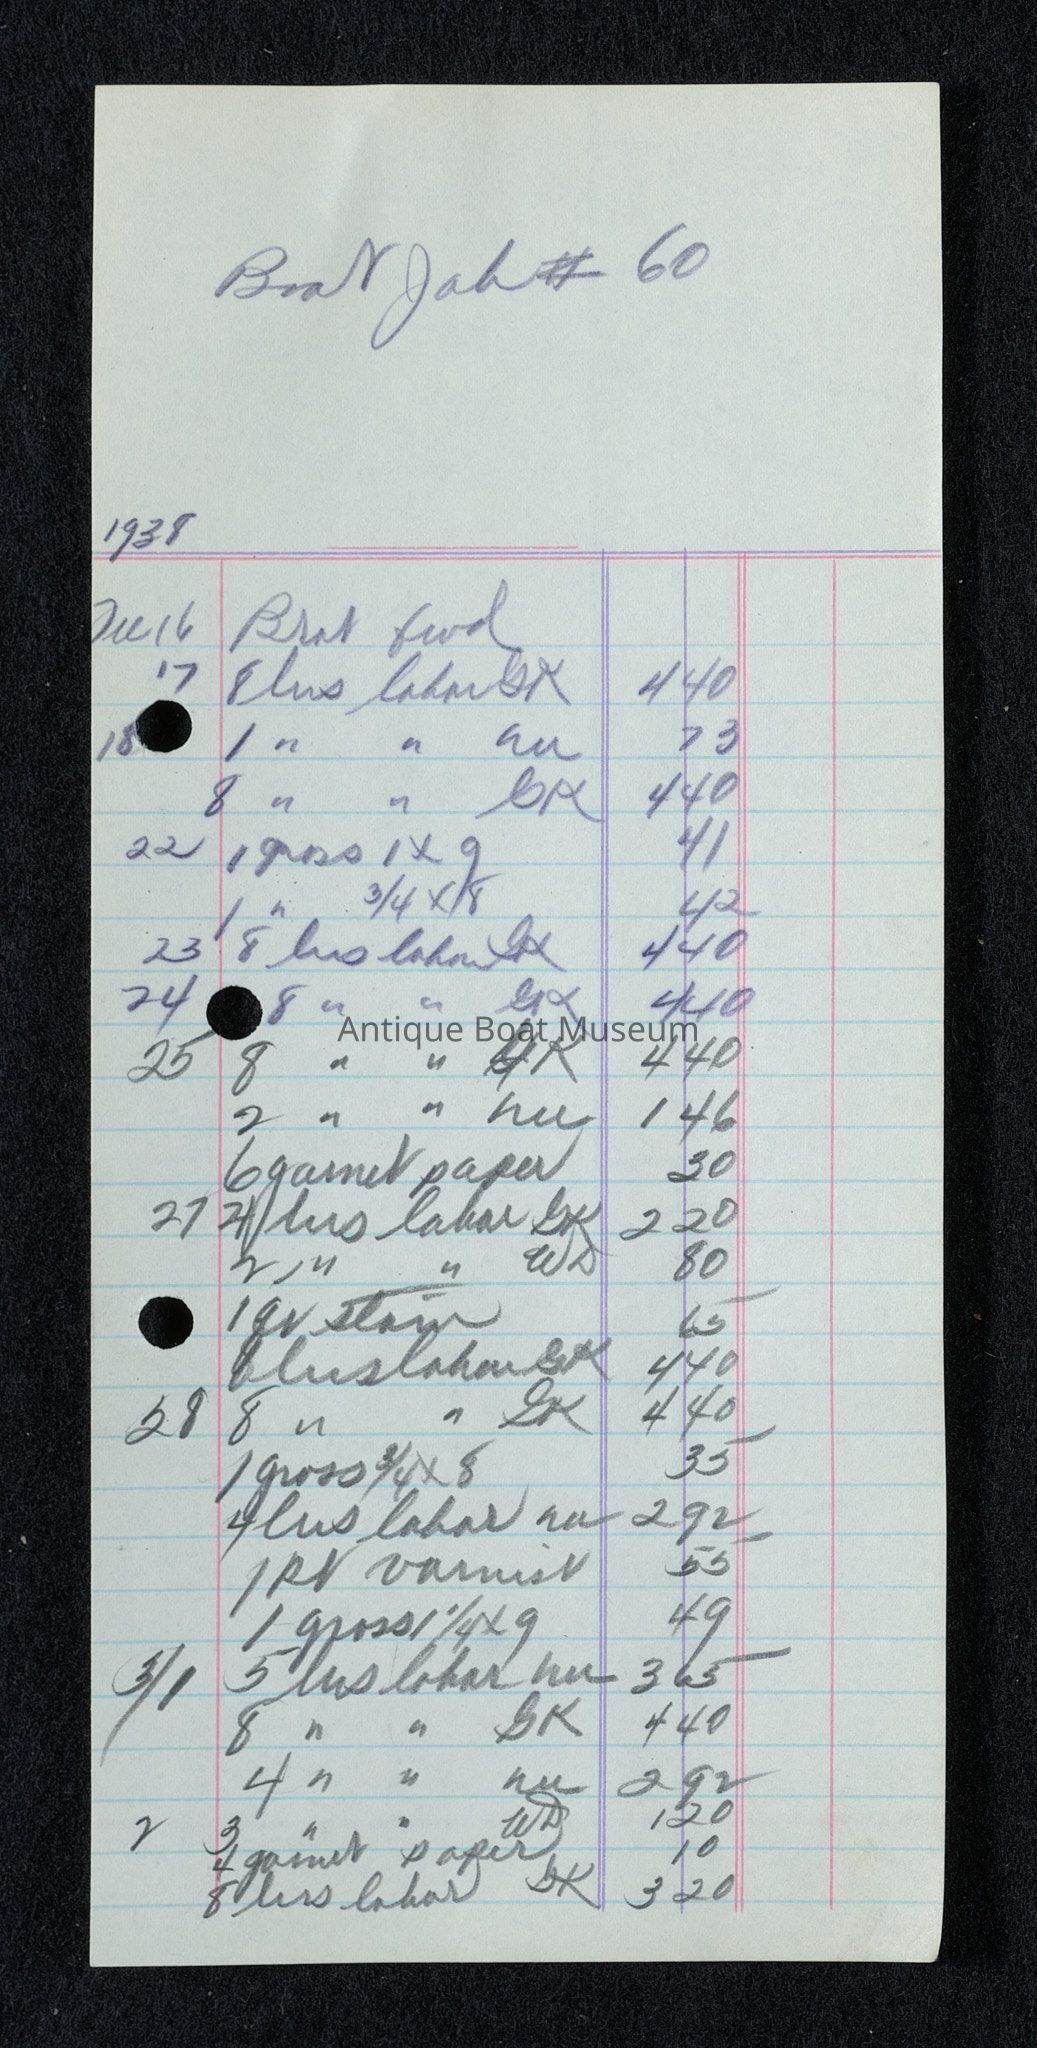 Boat Job # 60
1938
16 Brot fwd
17 8 hrs labor GK 4 40
18 1 " " nu 73
8 " " GK 4 40
22 1 gross 1 x 9 41
1 " 3/4 x 8 42
23 8 hrs labor GK 4 40
24 8 " " GK 4 40
Antique Boat Museum
25 8 " " GK 4 40
2 " " nu 1 46
6 garnet paper 30
27 4 hrs labor GK 2 20
2 " " WD 80
1 qt stain 65
8 hrs labor GK 4 40
28 8 " " GK 4 40
1 gross 3/4 x 8 35
4 hrs labor nu 2 92
1 pt varnish 55
1 gross 1 1/4 x 9 49
3/1 5 hrs labor nu 3 65
8 " " GK 4 40
4 " " nu 2 92
2 3 " " WD 1 20
4 garnet paper 10
8 hrs labor GK 3 20